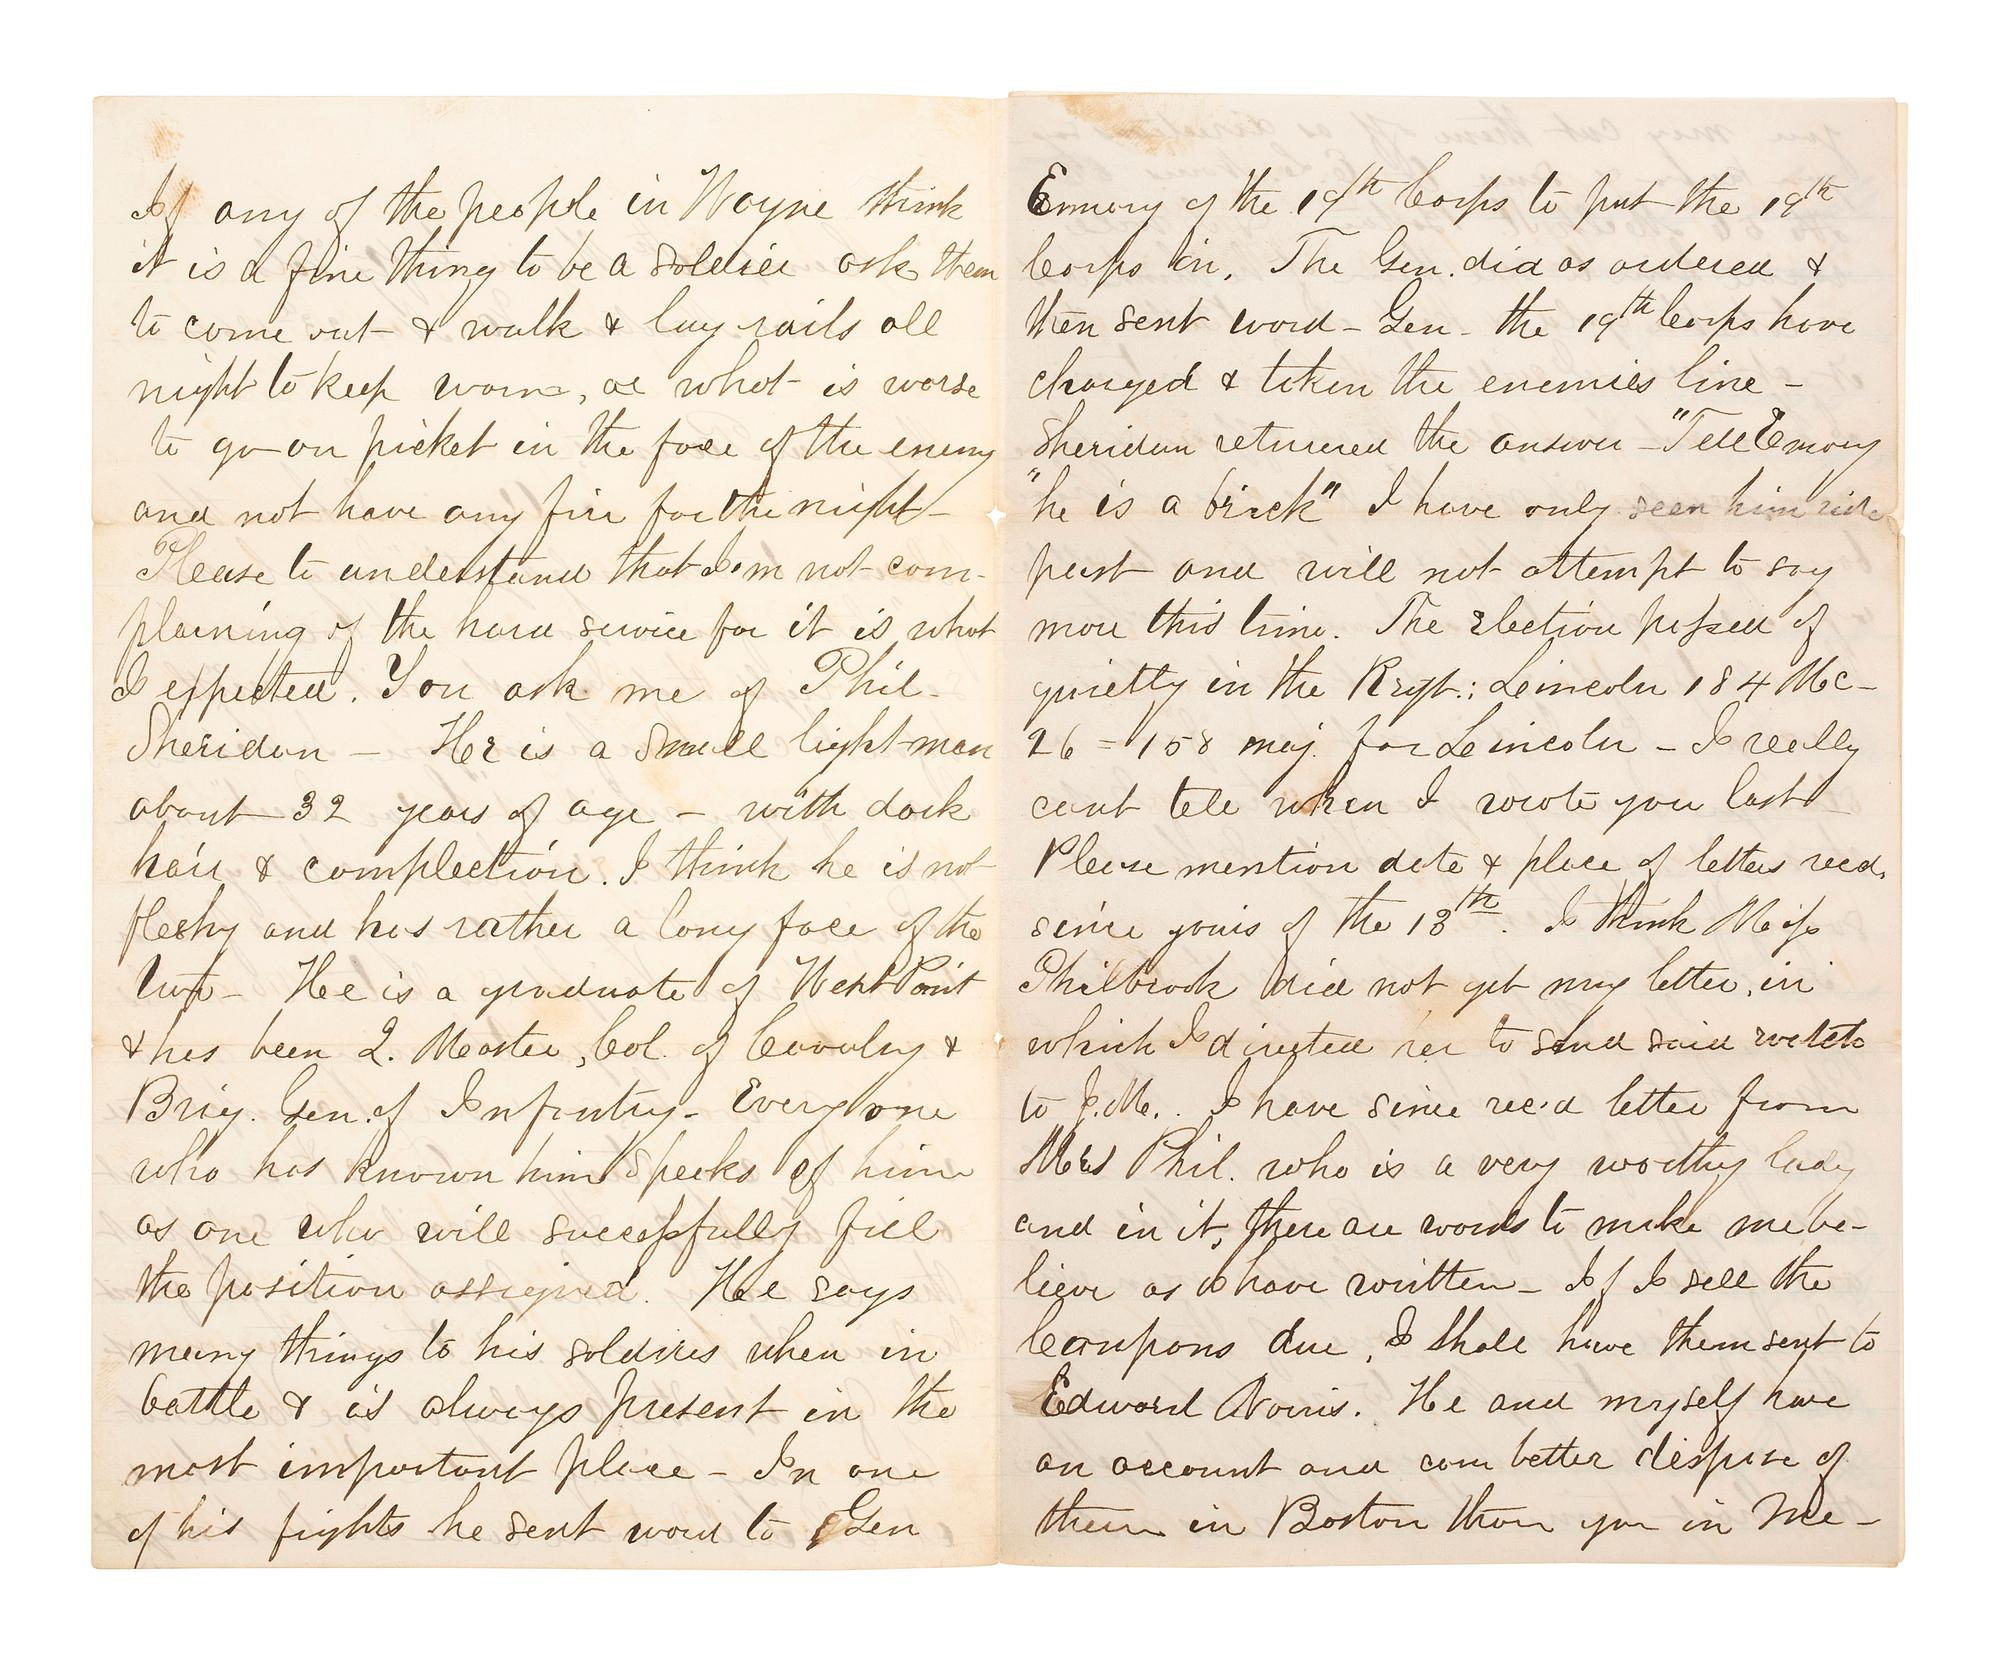 If any of the people in Wayne think
it is a fine thing to be a soldier ask them
to come out & walk & lay rails all
night to keep warm, or what is worse
to go on picket in the face of the enemy
and not have any fire for the night –
Please to understand that I am not com-
plaining of the hard service for it is what
I expected. You ask me of Phil-
Sheridan – He is a small light man
about 32 years of age – with dark
hair & complection. I think he is not
fleshy and has rather a long face of the
two – He is a graduate of West Point
& has been Q. Master, Col. of Cavalry &
Brig. Gen. of Infantry – Every one
who has known him speaks of him
as one who will successfully fill
the position assigned. He says
many things to his soldiers when in
battle & is always present in the
most important place – In one
of his fights he sent word to Gen
Emmory of the 19th Corps to put the 19th
Corps in. The Gen. did as ordered &
then sent word – Gen – the 19th Corps have
charged & taken the enemies line –
Sheridan returned the answer – "Tell Emory
"he is a brick" I have only seen him ride
past and will not attempt to say
more this time. The Election passed of
quietly in the Regt.: Leincoln 184 Mc –
26 = 158 maj. for Leincoln – I really
cant tell when I wrote you last –
Please mention date & place of letters recd.
since yours of the 13th. I think Miss
Philbrook did not get my letter, in
which I directed her to send said
to J.M.. I have since rec'd letter from
Mrs Phil. who is a very worthy lady
and in it, there are words to make me be-
lieve as I have written – If I sell the
Coupons due, I shall have them sent to
Edward Norris. He and myself have
an account and can better dispose of
them in Boston than you in Me –